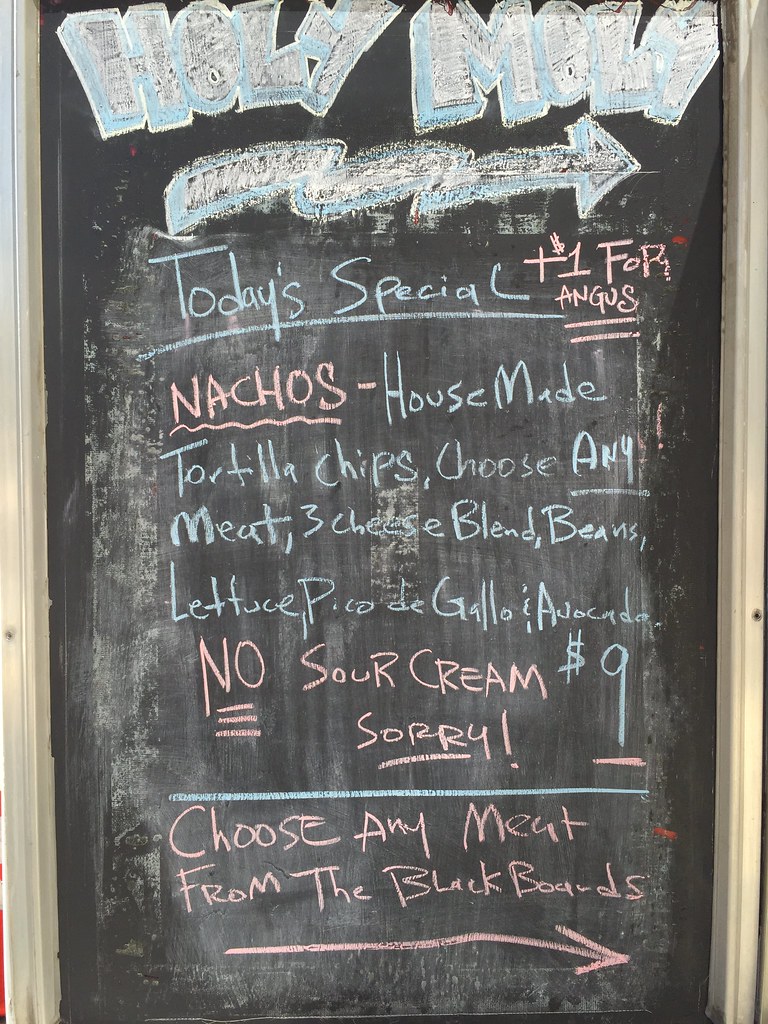 HOLY MOLY
Today's Special
+$1 FOR
ANGUS
NACHOS - House Made
Tortilla Chips, Choose ANY
Meat, 3 cheese Blend, Beans,
Lettuce, Pico de Gallo & Avocado
NO SOUR CREAM $9
SORRY!
CHOOSE Any Meat
FROM The Black Boards